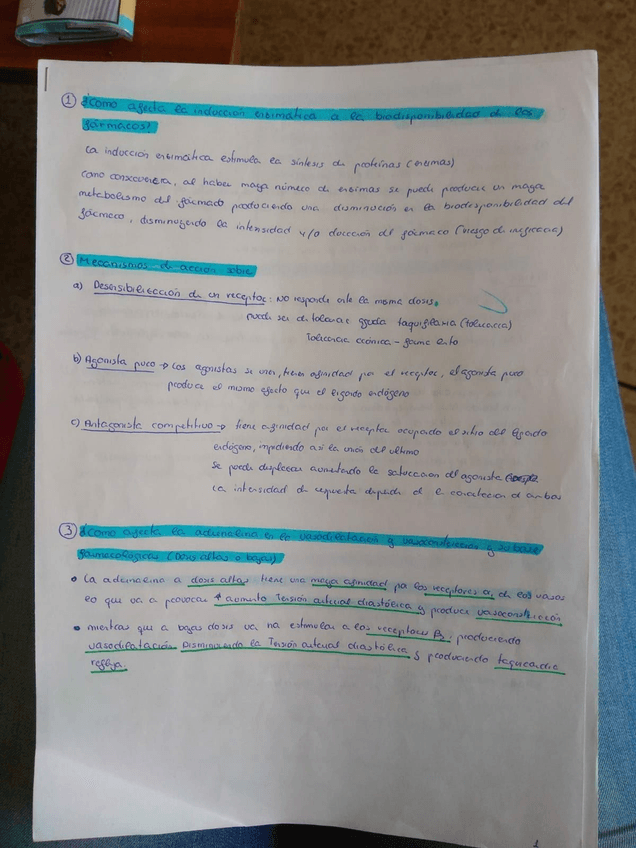 1 ¿Como afecta la inducción enzimática a la biodisponibilidad de los
fármacos?
La inducción enzimática estimula la síntesis de proteínas (enzimas)
como consecuencia, al haber mayor número de enzimas se puede producir un mayor
metabolismo del fármaco produciendo una disminución en la biodisponibilidad del
fármaco, disminuyendo la intensidad y/o duración del fármaco (riesgo de ineficacia)
2 Mecanismos de acción sobre
a) Desensibilización de un receptor: No responde ante la misma dosis.
puede ser de tolerancia aguda taquifilaxia (Tolerancia)
Tolerancia crónica - forma lenta
b) Agonista puro → Los agonistas se unen, tienen afinidad por el receptor, el agonista puro
produce el mismo efecto que el ligando endógeno
c) Antagonista competitivo → tiene afinidad por el receptor ocupando el sitio del ligando
endógeno, impidiendo así la unión del último
Se puede desplazar aumentando la saturación del agonista
La intensidad de respuesta depende de la concentración de ambos
3 ¿Como afecta la adrenalina en la vasodilatación y vasoconstricción y su base
farmacológica? (Dosis altas o bajas)
• La adrenalina a dosis altas tiene una mayor afinidad por los receptores α1 de los vasos
lo que va a provocar ↑ aumento Tensión arterial diastólica y produce vasoconstricción
• mientras que a bajas dosis va a estimular a los receptores β2, produciendo
vasodilatación. Disminuyendo la Tensión arterial diastólica y produciendo taquicardia
refleja.
1